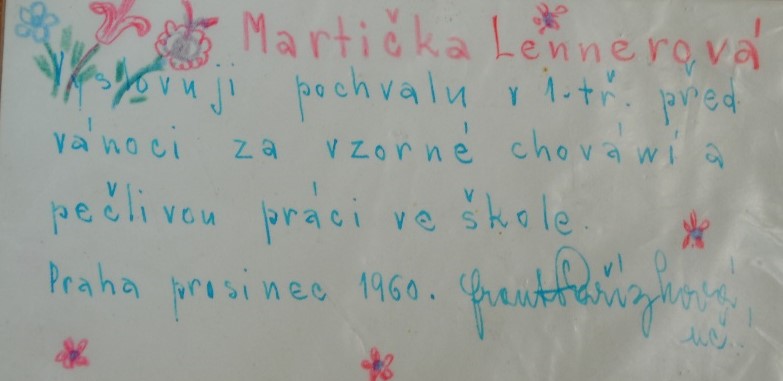 Martička Lennerová
Vyslovuji pochvalu v 1. tř. před
vánoci za vzorné chování a
pečlivou práci ve škole.
Praha prosinec 1960.
uč.